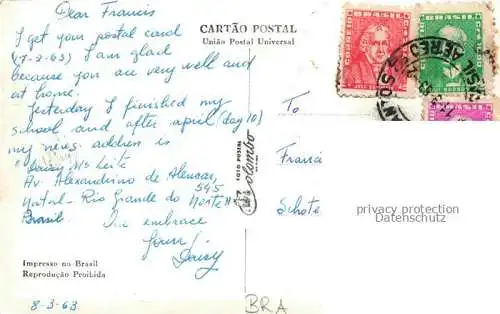 Dear Francis
I get your postal card
(7-2-63) I am glad
because you are very well and
at home.
Yesterday I finished my
school and after april (day 10)
my news address is
"Daisy Leite
Av. Alexandrino de Alencar,
545
Natal - Rio Grande do Norte"
Brasil. One embrace
Your!
Daisy
Impresso no Brasil
Reprodução Proibida
8-3-63
BRA
CARTÃO POSTAL
União Postal Universal
FOTO POSTAL
Colombo
To
Franci
Schote
BRASIL
CORREIO
BRASIL
CORREIO
AEREO
privacy protection
Datenschutz